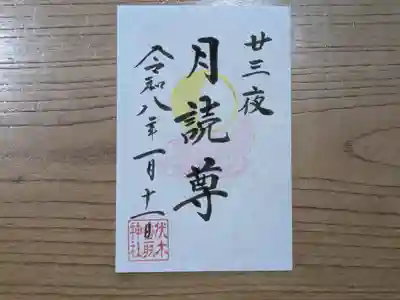 廿三夜
月読尊
令和八年一月十一日
伏木
香取
神社